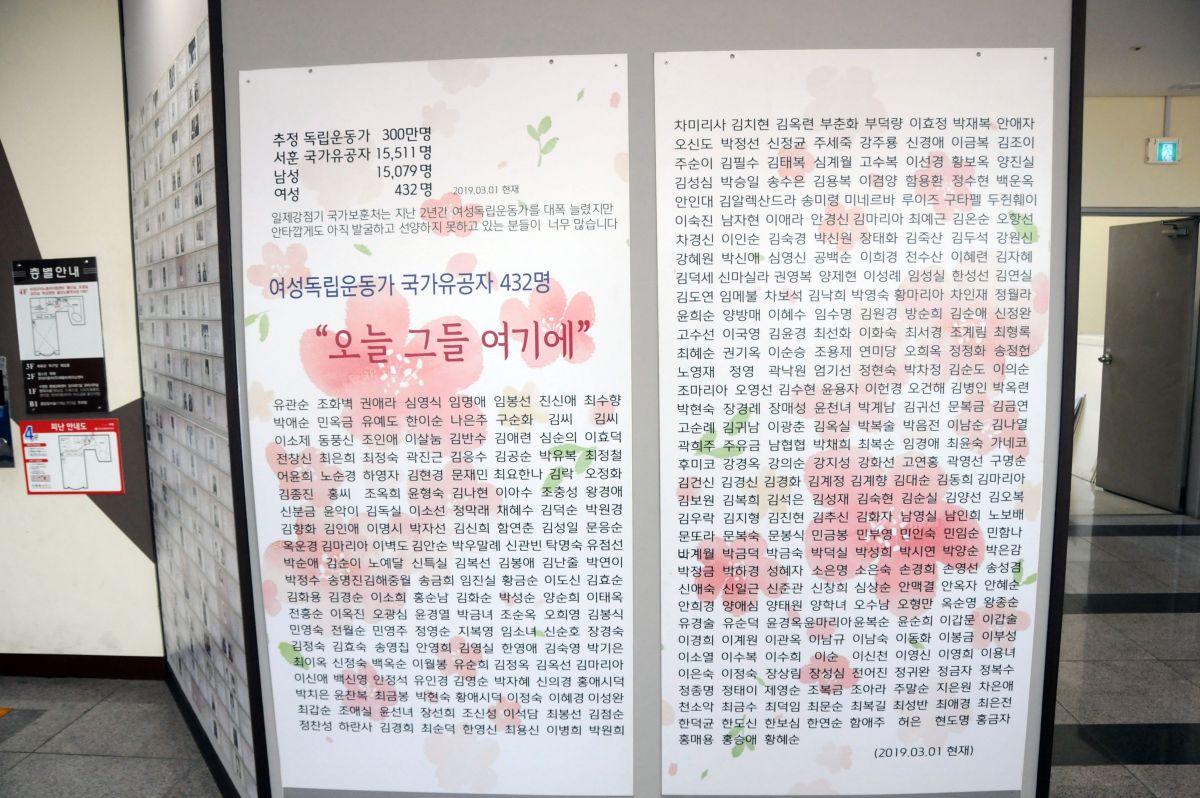 추정 독립운동가 300만명
서훈 국가유공자 15,511명
남성 15,079명
여성 432명 2019.03.01 현재
일제강점기 국가보훈처는 지난 2년간 여성독립운동가를 대폭 늘렸지만
안타깝게도 아직 발굴하고 선양하지 못하고 있는 분들이 너무 많습니다
여성독립운동가 국가유공자 432명
“오늘 그들 여기에”
유관순 조화벽 권애라 심영식 임명애 임봉선 진신애 최수향
박애순 민옥금 유예도 한이순 나은주 구순화 김씨 김씨
이소제 동풍신 조인애 이살눔 김반수 김애련 심순의 이효덕
전창신 최은희 최정숙 곽진근 김응수 김공순 박유복 최정철
어윤희 노순경 하영자 김현경 문재민 최요한나 김락 오정화
김종진 홍씨 조옥희 윤형숙 김나현 이아수 조충성 왕경애
신분금 윤악이 김독실 이소선 정막래 채혜수 김덕순 박원경
김향화 김인애 이명시 박자선 김신희 함연춘 김성일 문응순
옥운경 김마리아 이벽도 김안순 박우말례 신관빈 탁명숙 유점선
박순애 김순이 노예달 신특실 김복선 김봉애 김난줄 박연이
박정수 송명진 김해중월 송금희 임진실 황금순 이도신 김효순
김화용 김경순 이소희 홍순남 김화순 박성순 양순희 이태옥
전흥순 이옥진 오광심 유경열 박금녀 조순옥 오희영 김봉식
민영숙 전월순 민영주 정영순 지복영 임소녀 신순호 장경숙
김정숙 김효숙 송영집 안영희 김영실 한영애 김숙영 박기은
최이옥 신정숙 백옥순 이월봉 유순희 김정옥 김옥선 김마리아
이신애 백신영 안정석 유인경 김영순 박자혜 신의경 홍애시덕
박치은 윤찬복 최금봉 박현숙 황애시덕 이정숙 이혜경 이성완
최갑순 조애실 윤선녀 장선희 조신성 이석담 최봉선 김점순
정찬성 하란사 김경희 최순덕 한영신 최용신 이병희 박원희
차미리사 김치현 김옥련 부춘화 부덕량 이효정 박재복 안애자
오신도 박정선 신정균 주세죽 강주룡 신경애 이금복 김조이
주순이 김필수 김태복 심계월 고수복 이선경 황보옥 양진실
김성심 박승일 송수은 김용복 이겸양 함용환 정수현 백운옥
안인대 김알렉산드라 송미령 미네르바 루이즈 구타펠 두쥔훼이
이숙진 남자현 이애라 안경신 김마리아 최예근 김온순 오항선
차경신 이인순 김숙경 박신원 장태화 김죽산 김두석 강원신
강혜원 박신애 심영신 공백순 이희경 전수산 이혜련 김자혜
김덕세 신마실라 권영복 양제현 이성례 임성실 한성선 김연실
김도연 임메불 차보석 김낙희 박영숙 황마리아 차인재 정월라
윤희순 양방매 이혜수 임수명 김원경 방순희 김순애 신정완
고수선 이국영 김윤경 최선화 이화숙 최서경 조계림 최형록
최혜순 권기옥 이순승 조용제 연미당 오희옥 정정화 송정헌
노영재 정영 곽낙원 엄기선 정현숙 박차정 김순도 이의순
조마리아 오영선 김수현 윤용자 이헌경 오건해 김병인 박옥련
박현숙 장경례 장매성 윤천녀 박계남 김귀선 문복금 김금연
고순례 김귀남 이광춘 김옥실 박복술 박음전 이남순 김나열
곽희주 주유금 남협협 박채희 최복순 임경애 최윤숙 가네코
후미코 강경옥 강의순 강지성 강화선 고연홍 곽영선 구명순
김건신 김경신 김경화 김계정 김계향 김대순 김동희 김마리아
김보원 김복희 김석은 김성재 김숙현 김순실 김양선 김오복
김우락 김지형 김진현 김추신 김화자 남영실 남인희 노보배
문또라 문복숙 문봉식 민금봉 민부영 민인숙 민임순 민함나
바계월 박금덕 박금숙 박덕실 박성희 박시연 박양순 박은감
박정금 박하경 성혜자 소은명 소은숙 손경희 손영선 송성겸
신애숙 신일근 신준관 신창희 심상순 안맥결 안옥자 안혜순
안희경 양애심 양태원 양학녀 오수남 오형만 옥순영 왕종순
유경술 유순덕 윤경옥 윤마리아 윤복순 윤순희 이갑문 이갑술
이경희 이계원 이관옥 이남규 이남숙 이동화 이봉금 이부성
이소열 이수복 이수희 이순 이신천 이영신 이영희 이용녀
이은숙 이정숙 장상림 장성심 전어진 정귀완 정금자 정복수
정종명 정태이 제영순 조복금 조아라 주말순 지은원 차은애
천소악 최금수 최덕임 최문순 최복길 최성반 최애경 최은전
한덕균 한도신 한보심 한연순 함애주 허은 현도명 홍금자
홍매용 홍승애 황혜순
(2019.03.01 현재)
층별안내
4F
3F
2F
1F
B1
피난 안내도
4F